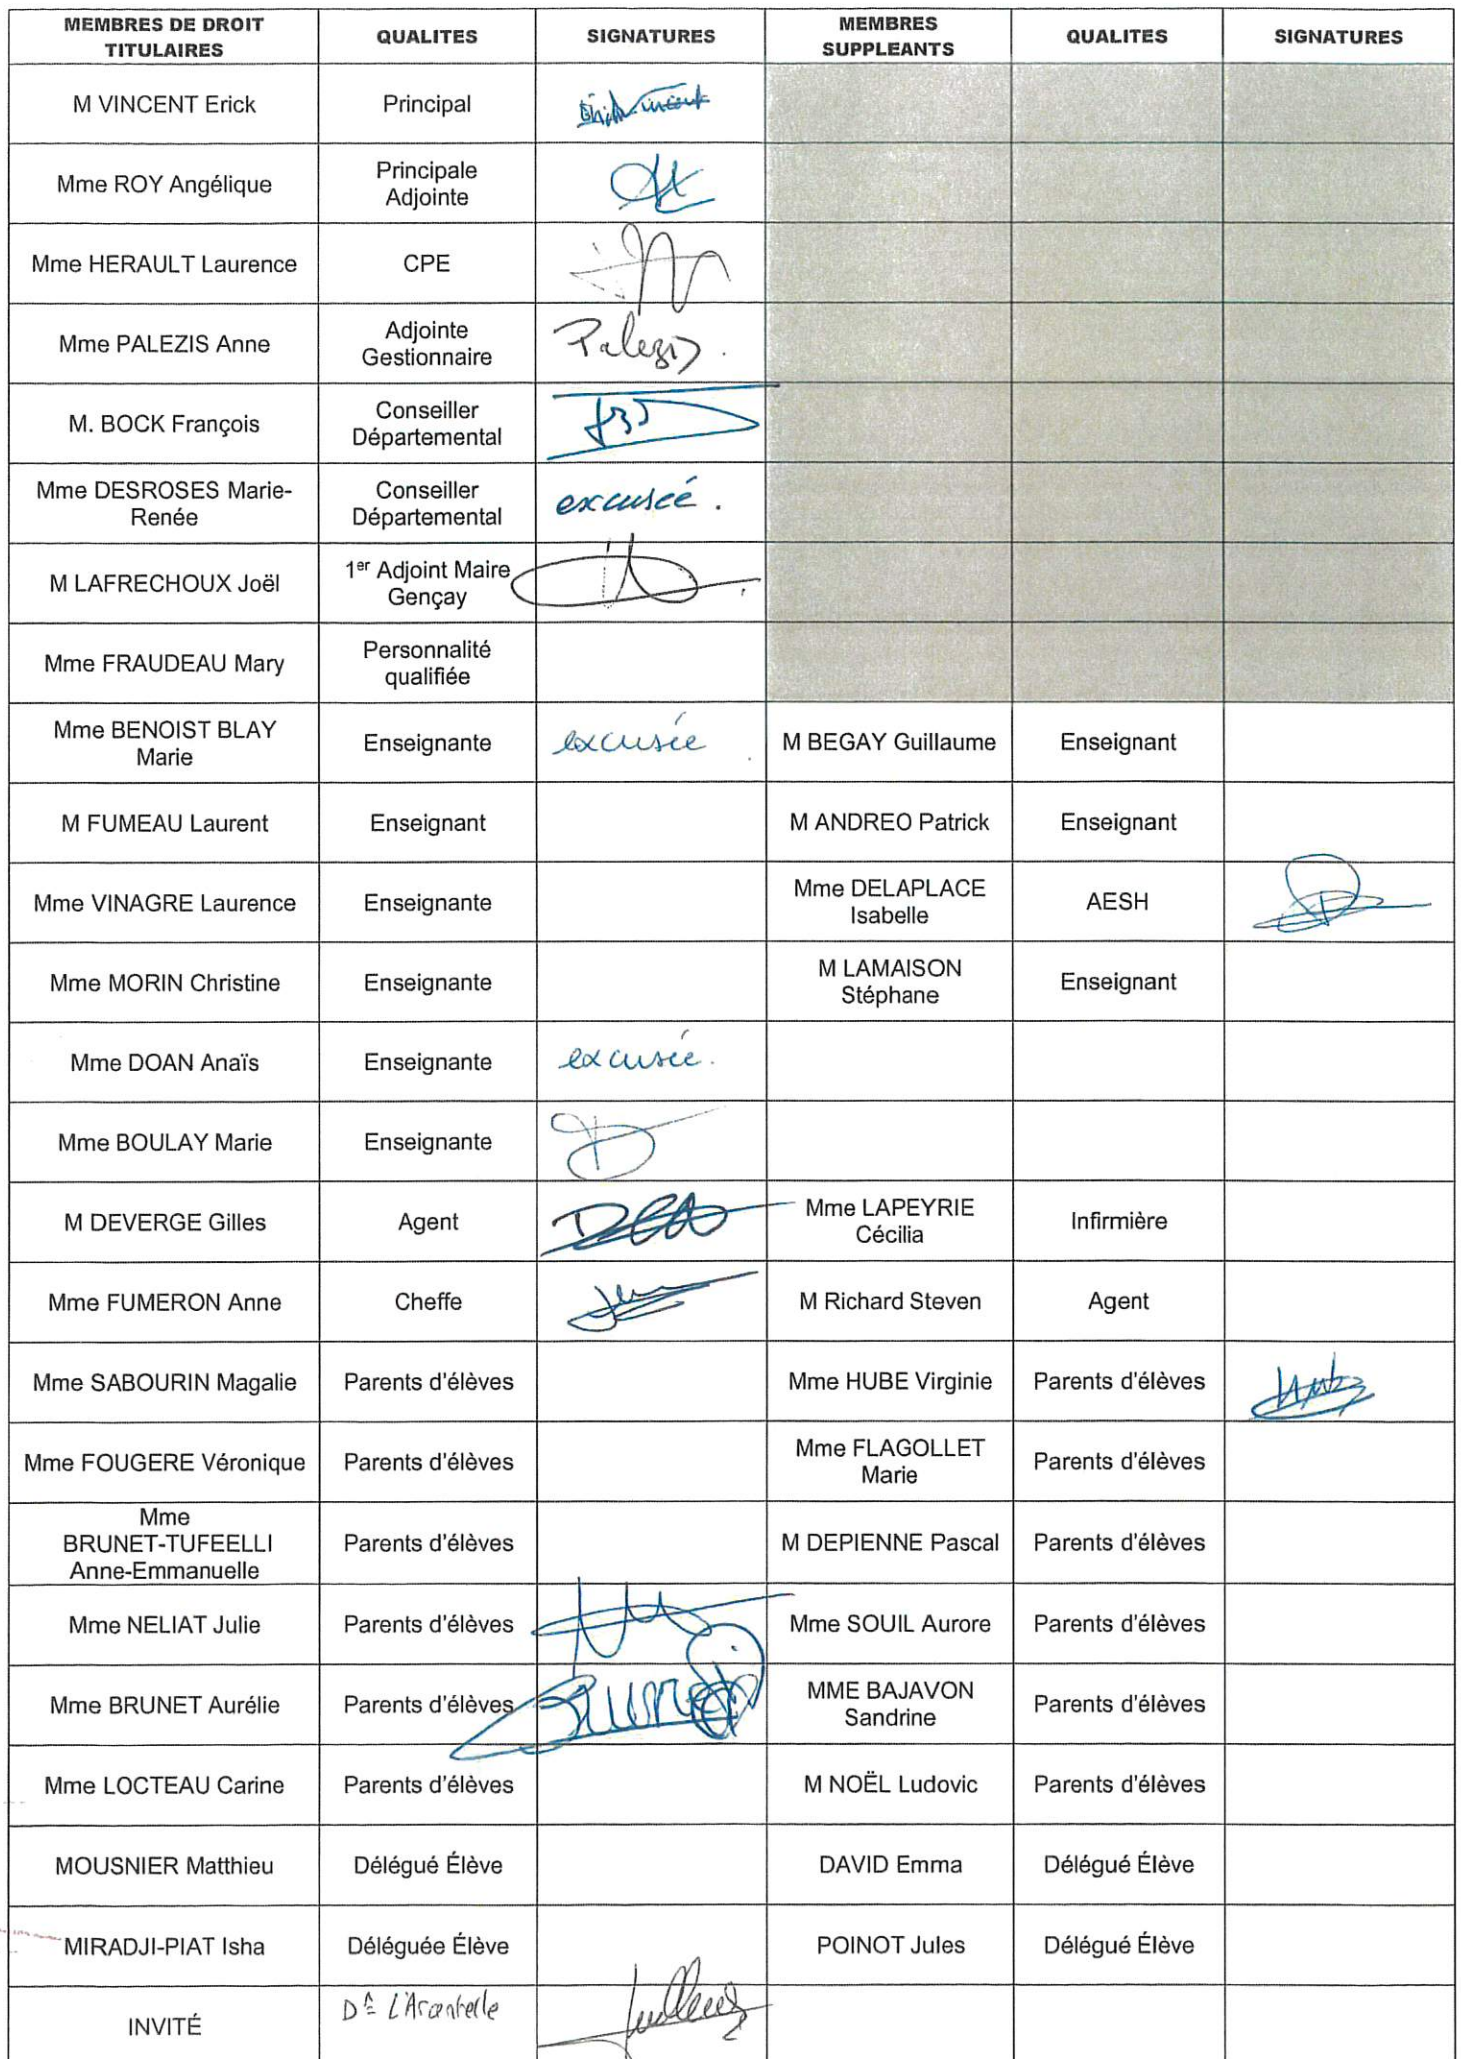 MEMBRES DE DROIT
TITULAIRES
QUALITES
SIGNATURES
MEMBRES
SUPPLEANTS
QUALITES
SIGNATURES
M VINCENT Erick
Principal
Mme ROY Angélique
Principale
Adjointe
Mme HERAULT Laurence
CPE
Mme PALEZIS Anne
Adjointe
Gestionnaire
Palezis
M. BOCK François
Conseiller
Départemental
Mme DESROSES Marie-
Renée
Conseiller
Départemental
excusée.
M LAFRECHOUX Joël
1er Adjoint Maire
Gençay
Mme FRAUDEAU Mary
Personnalité
qualifiée
Mme BENOIST BLAY
Marie
Enseignante
excusée
M BEGAY Guillaume
Enseignant
M FUMEAU Laurent
Enseignant
M ANDREO Patrick
Enseignant
Mme VINAGRE Laurence
Enseignante
Mme DELAPLACE
Isabelle
AESH
Mme MORIN Christine
Enseignante
M LAMAISON
Stéphane
Enseignant
Mme DOAN Anaïs
Enseignante
excusée.
Mme BOULAY Marie
Enseignante
M DEVERGE Gilles
Agent
Mme LAPEYRIE
Cécilia
Infirmière
Mme FUMERON Anne
Cheffe
M Richard Steven
Agent
Mme SABOURIN Magalie
Parents d'élèves
Mme HUBE Virginie
Parents d'élèves
Mme FOUGERE Véronique
Parents d'élèves
Mme FLAGOLLET
Marie
Parents d'élèves
Mme
BRUNET-TUFEELLI
Anne-Emmanuelle
Parents d'élèves
M DEPIENNE Pascal
Parents d'élèves
Mme NELIAT Julie
Parents d'élèves
Mme SOUIL Aurore
Parents d'élèves
Mme BRUNET Aurélie
Parents d'élèves
Brunet
MME BAJAVON
Sandrine
Parents d'élèves
Mme LOCTEAU Carine
Parents d'élèves
M NOËL Ludovic
Parents d'élèves
MOUSNIER Matthieu
Délégué Élève
DAVID Emma
Délégué Élève
MIRADJI-PIAT Isha
Déléguée Élève
POINOT Jules
Délégué Élève
INVITÉ